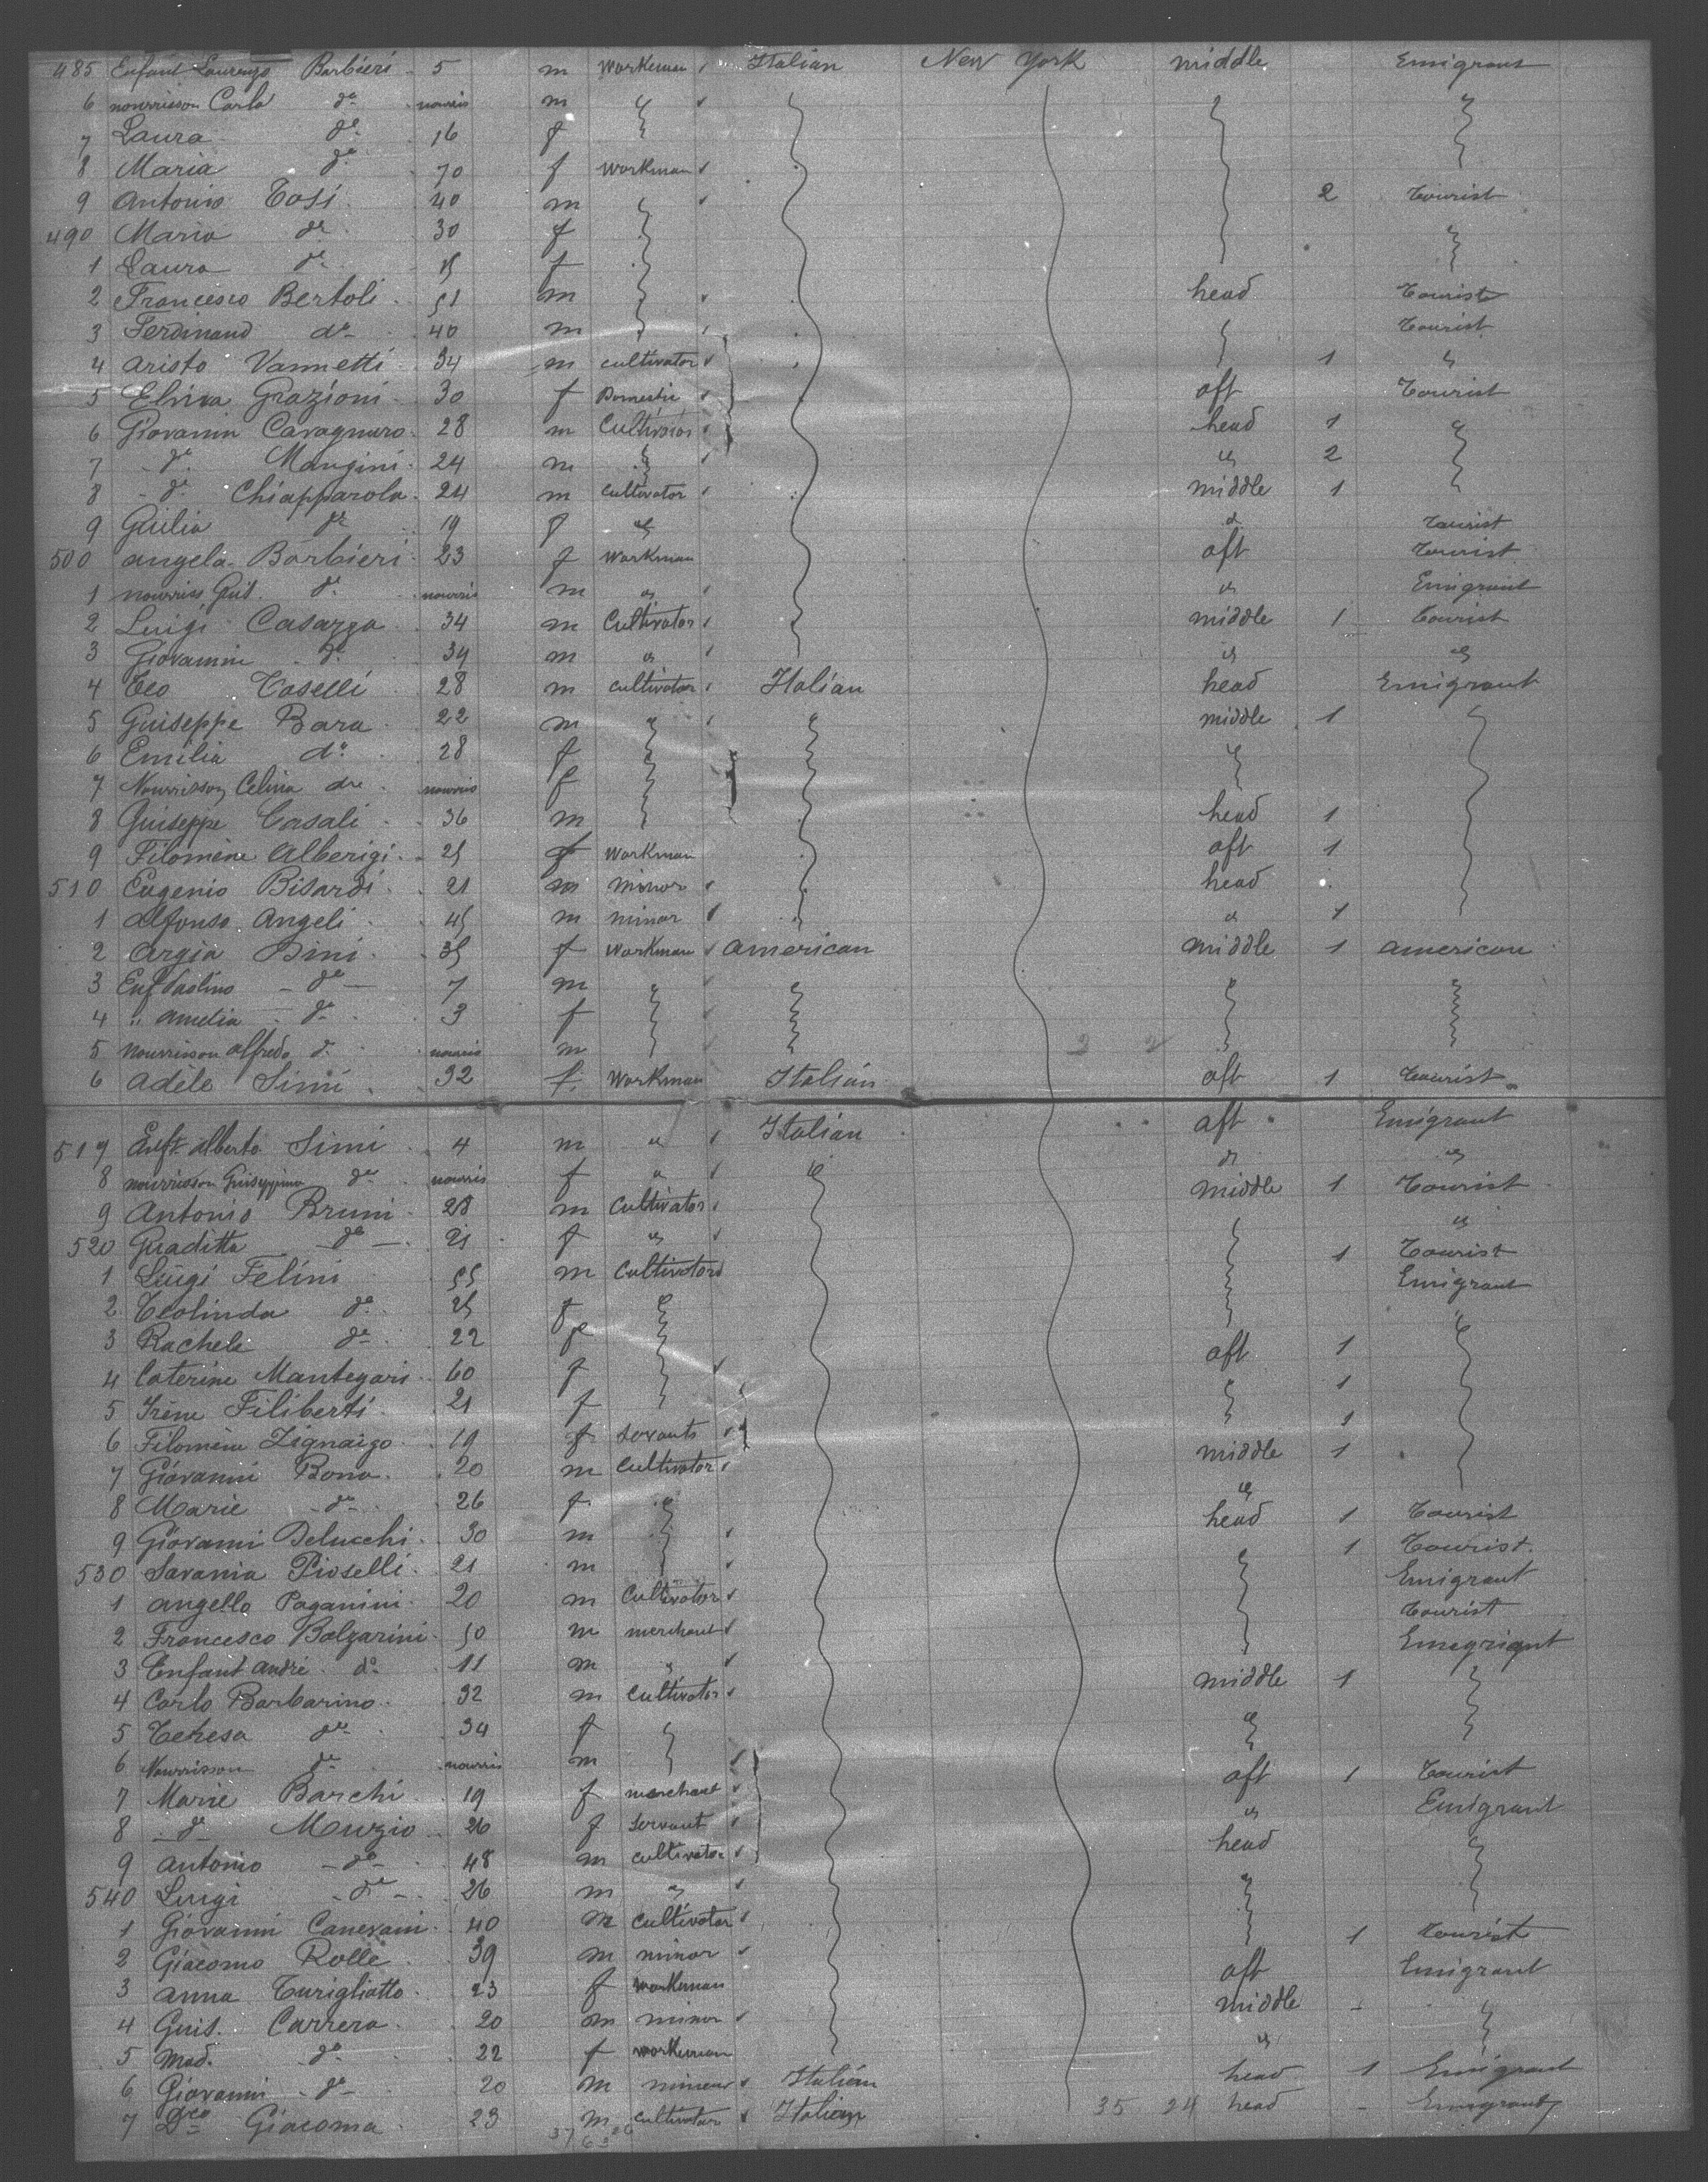 485 Enfant Laurenzo Barbieri 5 m Workman Italian New York middle Emigrant
6 nourrisson Carlo do nourris m
7 Laura do 16 f
8 Maria do 70 f Workman
9 Antonio Tosi 40 m 2 Tourist
490 Maria do 30 f
1 Laura do 15 f
2 Francesco Bertoli 51 m head Tourist
3 Ferdinand do 40 m Tourist
4 Aristo Vannetti 34 m cultivator 1
5 Elvira Grazioni 30 f Domestic aft Tourist
6 Giovanni Cavagnaro 28 m Cultivator head 1
7 do Mangini 24 m " 2
8 do Chiapparola 24 m Cultivator middle 1
9 Giulia do 19 f " " Tourist
500 Angela Barbieri 23 f Workman aft Tourist
1 nourriss Guis. do nourris m " " Emigrant
2 Luigi Casazza 34 m Cultivator middle 1 Tourist
3 Giovanni do 34 m " " "
4 Teo Caselli 28 m cultivator Italian head Emigrant
5 Guiseppe Bara 22 m middle 1
6 Emilia do 28 f
7 Nourrisson Celina do nourris f
8 Guiseppe Casali 36 m head 1
9 Filomène Alberigi 25 f Workman aft 1
510 Eugenio Bisardi 21 m minor head
1 Alfonso Angeli 45 m minor " 1
2 Argia Dini 35 f Workman American middle 1 American
3 Enf Paolino do 7 m
4 " Amelia do 3 f
5 Nourrisson Alfredo do nourris m
6 Adèle Simi 32 f. Workman Italian aft 1 Tourist
517 Enft Alberto Simi 4 m " Italian aft Emigrant
8 nourrisson Guiseppina do nourris f " " "
9 Antonio Bruni 28 m Cultivator middle 1 Tourist
520 Giuditta do 21 f " "
1 Luigi Felini 55 m Cultivators 1 Tourist
2 Teolinda do 25 f Emigrant
3 Rachele do 22 f
4 Caterine Mantegari 60 f aft 1
5 Irène Filiberti 21 f 1
6 Filomène Zignaigo 19 f Servants 1
7 Giovanni Bono 20 m Cultivator middle 1
8 Marie do 26 f "
9 Giovanni Delucchi 30 m head 1 Tourist
530 Savania Pioselli 21 m 1 Tourist.
1 Angello Paganini 20 m Cultivator Emigrant
2 Francesco Balzarini 50 m merchant Tourist
3 Enfant André do 11 m " Emegrigant
4 Carlo Barbarino 32 m Cultivator middle 1
5 Teresa do 34 f
6 Nourrisson do nourris m
7 Marie Barchi 19 f merchant aft 1 Tourist
8 do Muzio 26 f Servant " Emigrant
9 Antonio do 48 m cultivator head
540 Luigi do 26 m "
1 Giovanni Canevani 40 m Cultivator 1 tourist
2 Giacomo Rolle 39 m minor
3 Anna Turigliatto 23 f workman aft Emigrant
4 Guis. Carrera 20 m minor middle
5 Mad. do 22 f workman "
6 Giovanni do 20 m mineur Italian head 1 Emigrant
7 Dco Giacoma 23 m cultivator Italian 35 24 head Emigrant